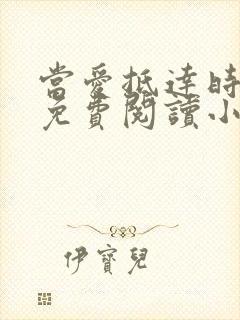 當愛抵達時
免費閱讀小
伊寶兒